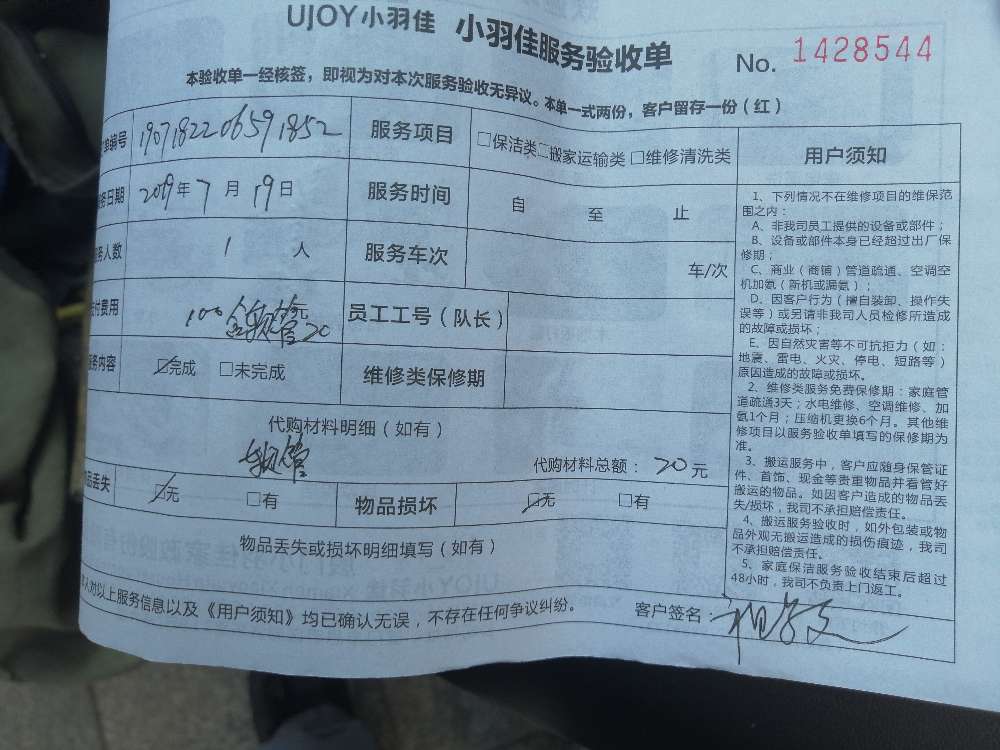 UJOY小羽佳 小羽佳服务验收单 No. 1428544
本验收单一经核签，即视为对本次服务验收无异议。本单一式两份，客户留存一份（红）
编号 1907182206591852 服务项目 □保洁类□搬家运输类 □维修清洗类
日期 2019年7月19日 服务时间 自 至 止
人数 1 人 服务车次 车/次
付费用 100 含软管20 元 员工工号（队长）
务内容 ☑完成 □未完成 维修类保修期
代购材料明细（如有）
软管
代购材料总额：20元
品丢失 ☑无 □有 物品损坏 ☑无 □有
物品丢失或损坏明细填写（如有）
人对以上服务信息以及《用户须知》均已确认无误，不存在任何争议纠纷。
客户签名：
用户须知
1、下列情况不在维修项目的维保范
围之内：
A、非我司员工提供的设备或部件；
B、设备或部件本身已经超过出厂保
修期；
C、商业（商铺）管道疏通、空调空
机加氨（新机或漏氨）；
D、因客户行为（擅自装卸、操作失
误等）或另请非我司人员检修所造成
的故障或损坏；
E、因自然灾害等不可抗拒力（如：
地震、雷电、火灾、停电、短路等）
原因造成的故障或损坏。
2、维修类服务免费保修期：家庭管
道疏通3天；水电维修、空调维修、加
氨1个月；压缩机更换6个月。其他维
修项目以服务验收单填写的保修期为
准。
3、搬运服务中，客户应随身保管证
件、首饰、现金等贵重物品并看管好
搬运的物品。如因客户造成的物品丢
失/损坏，我司不承担赔偿责任。
4、搬运服务验收时，如外包装或物
品外观无搬运造成的损伤痕迹，我司
不承担赔偿责任。
5、家庭保洁服务验收结束后超过
48小时，我司不负责上门返工。